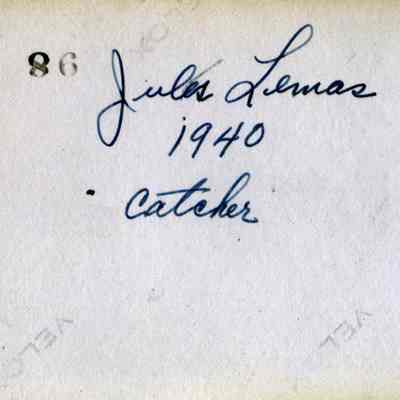 86
Jules Lemas
1940
catcher
VELO
VELO